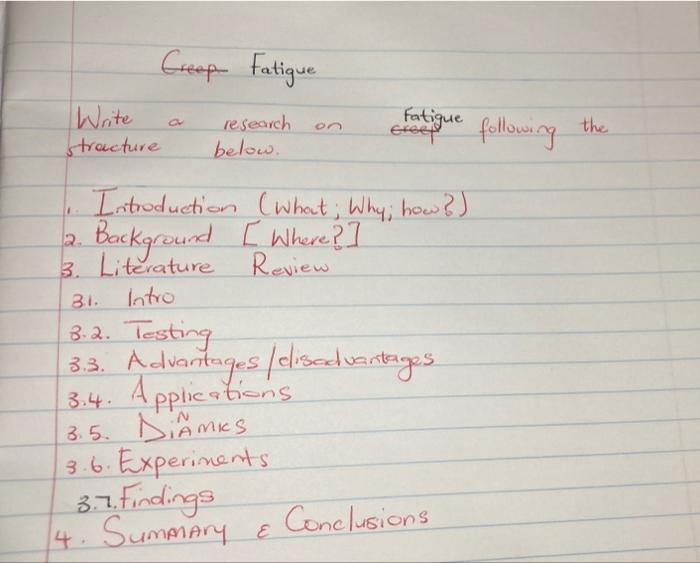 Creep Fatigue
Fatigue
Write a research on creep following the
structure below.
1. Introduction (What; Why; how?)
2. Background [Where?]
3. Literature Review
3.1. Intro
3.2. Testing
3.3. Advantages/disadvantages
3.4. Applications
3.5. DiNAMICS
3.6. Experiments
3.7. Findings
4. SUMMARY & Conclusions